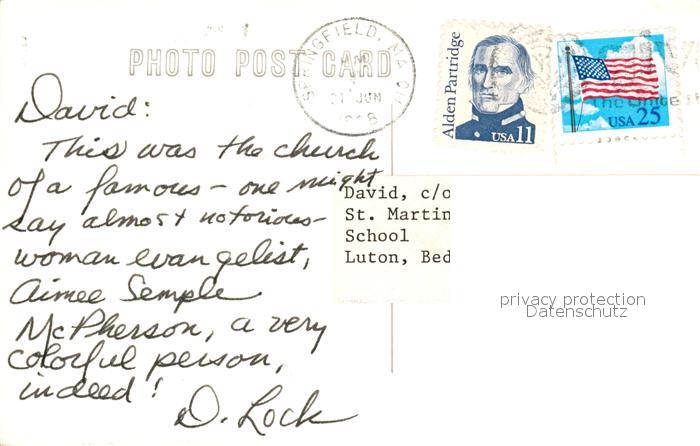 PHOTO POST CARD
SPRINGFIELD, MA
PM
21 JUN
Alden Partridge
USA 11
USA 25
David:
This was the church
of a famous - one might
say almost notorious -
woman evangelist,
Aimee Semple
McPherson, a very
colorful person,
indeed!
D. Lock
David, c/o
St. Martin
School
Luton, Bed
privacy protection
Datenschutz